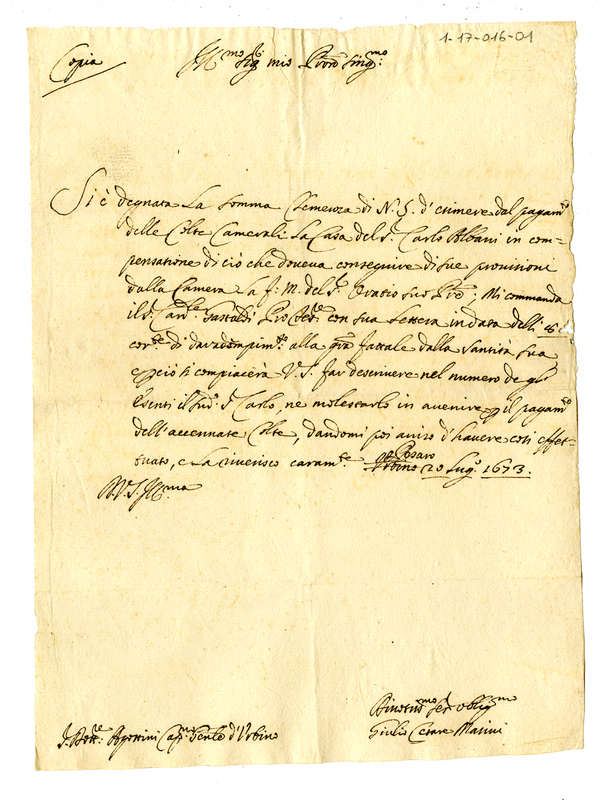 1-17-016-01
Copia
Ill.mo Sig.r mio Pron Sing.mo
Si è degnata la somma Clemenza di N. S. d'esimere dal pagam.to
delle Colte Camerali la Casa del S.r Carlo Albani in com=
pensatione di ciò che doveva conseguire di sue provisioni
dalla Camera la f: M. del S.r Oratio suo Pre; Mi commanda
il S. Card.le Gastaldi Pro Tes.re con sua lettera in data delli 15
cor.te di dar adempim.to alla gra fattale dalla Santità sua
e perciò si compiacerà V. S. far descrivere nel numero de gli
Esenti il sud.o S. Carlo, ne molestarlo in avenire per il pagam.to
dell'accennate Colte, dandomi poi aviso d'havere così effet=
tuato, e la riverisco caram.te Pesaro
Urbino 20 Lug.o 1673.
D. V. S. Ill.ma
Divotiss.mo Ser. oblig.mo
Giulio Cesare Marini
S. Batt. Agostini Urbino